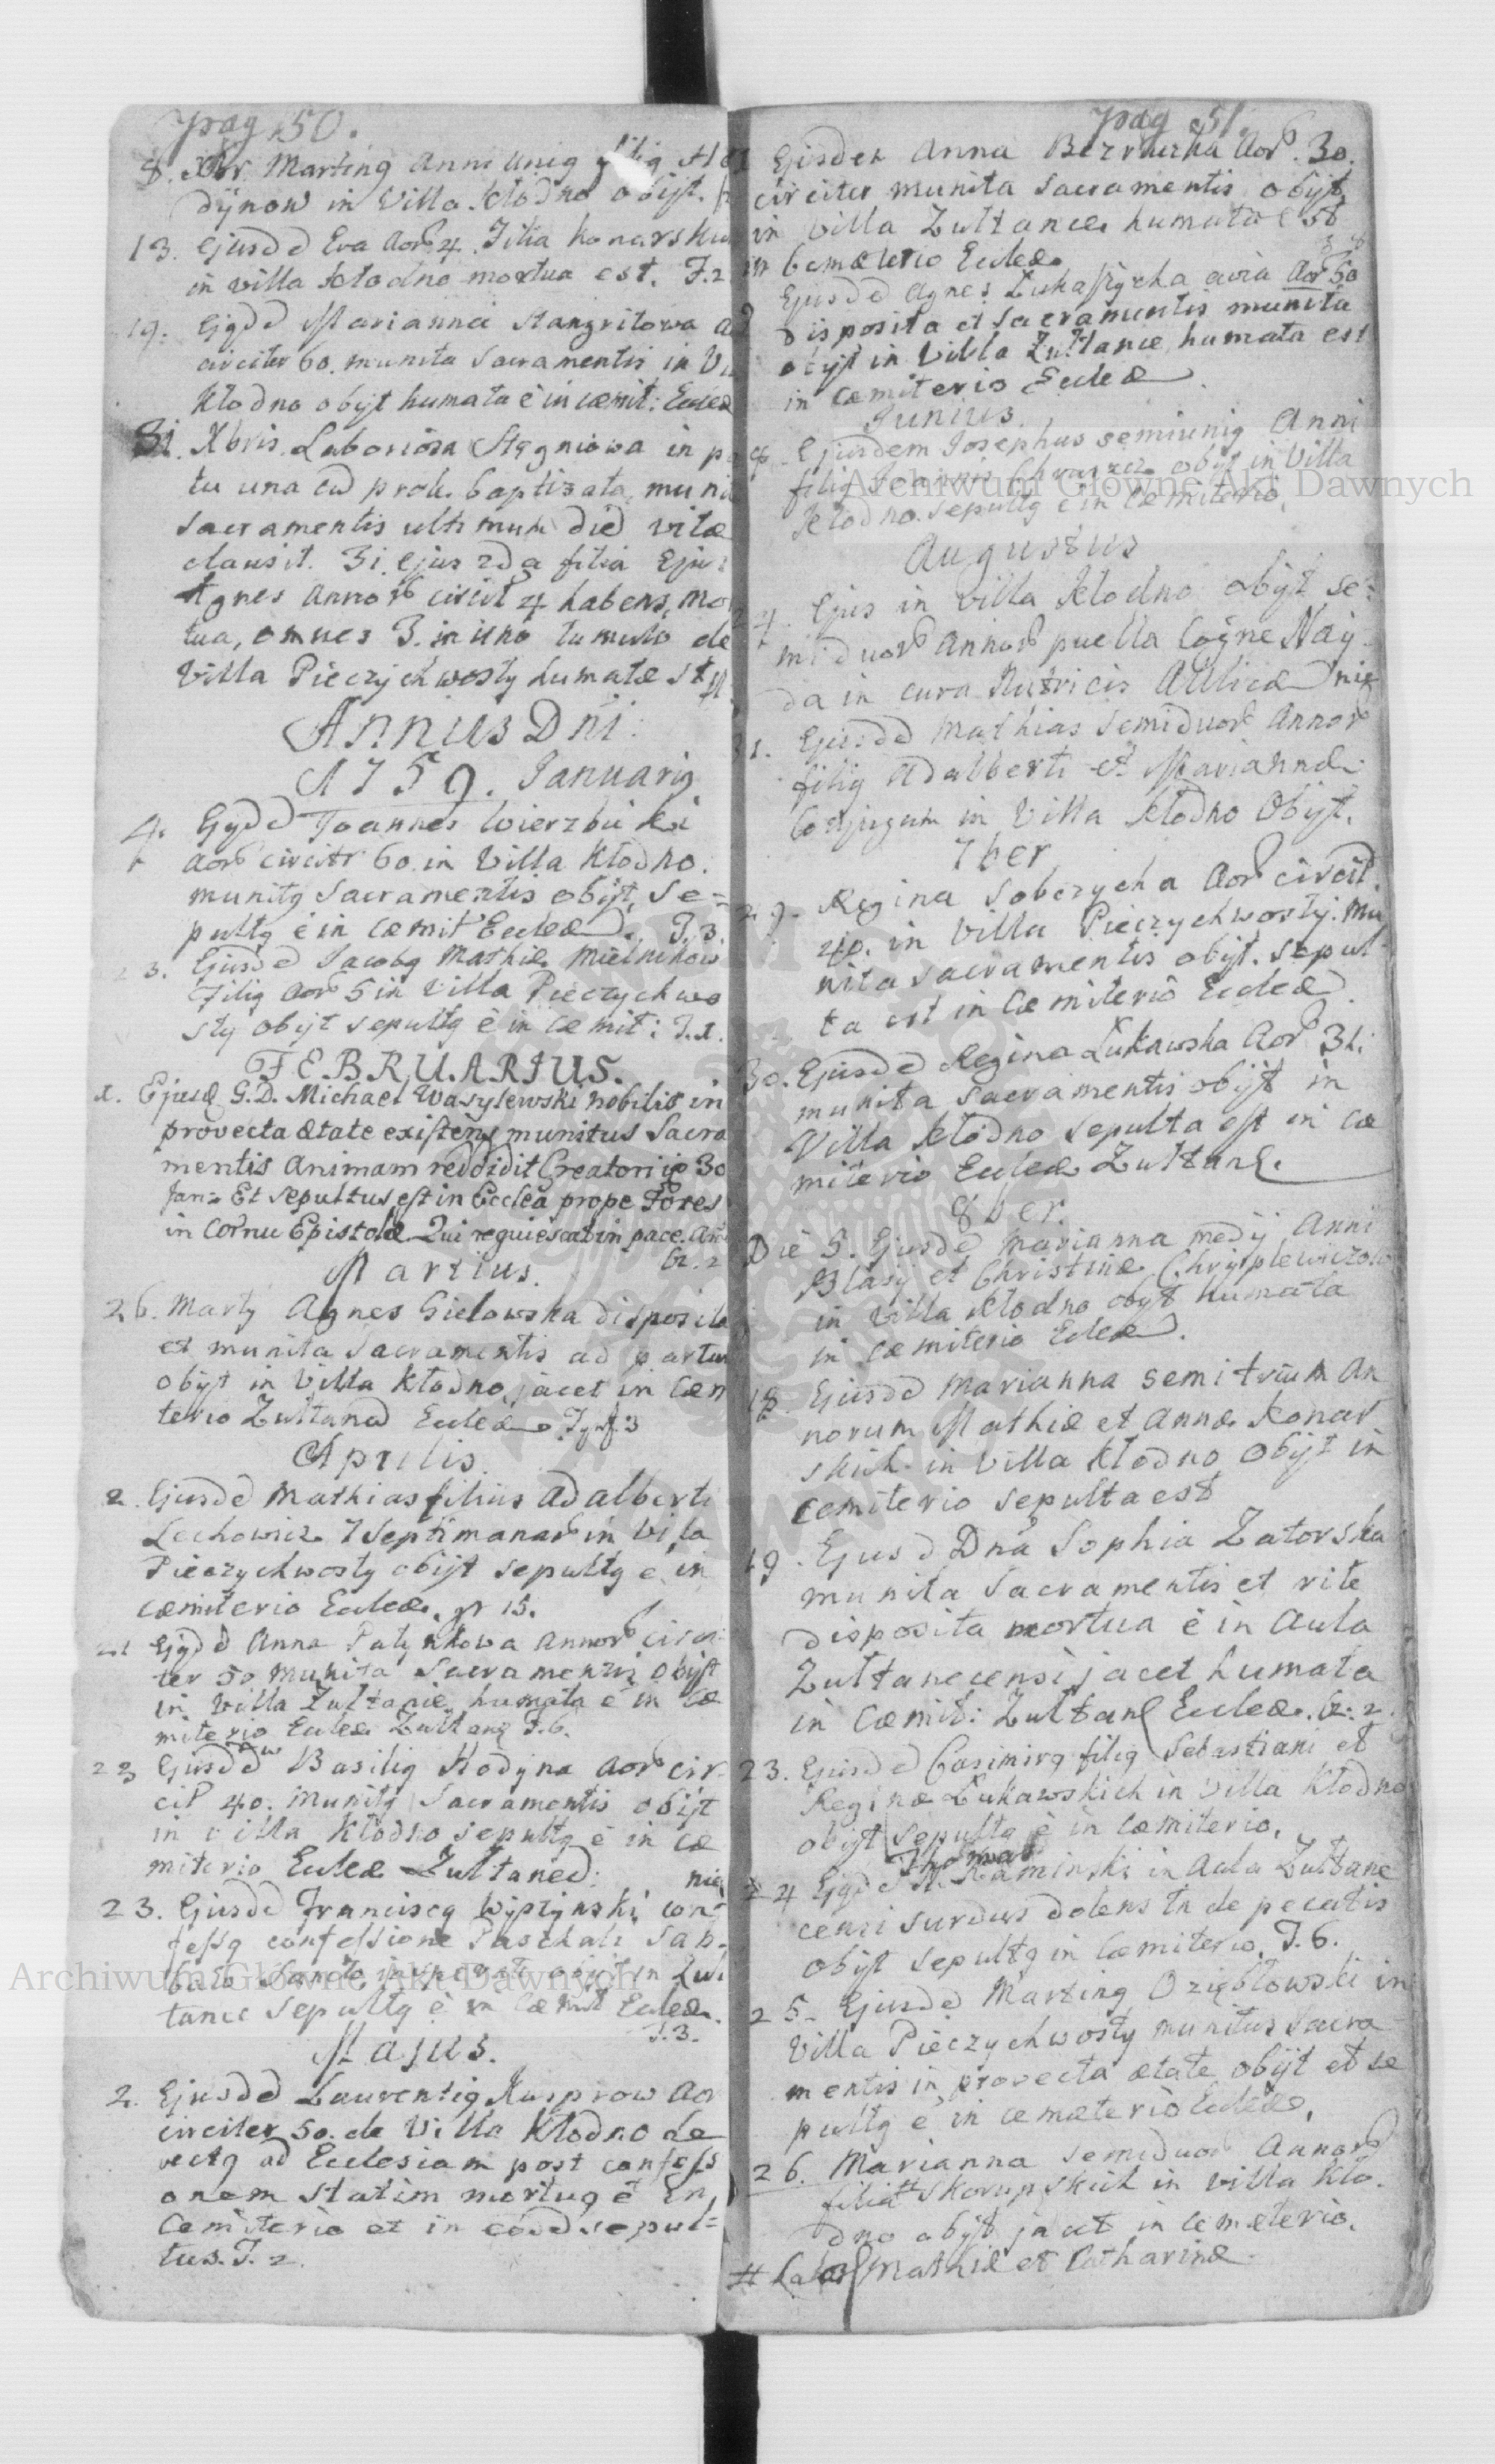 pag. 50.
8. Xbr. Marting Anni unig filig
dÿnow in Villa Kłodno obijt.
13. ejusdē Eva Aorb 4. Filia Konarskich
in villa Kłodno mortua est. F. 2
19. Ejgdē Marianna Stangritowa
circiter 60. munita Sacramentis in
Kłodno obijt humata ē in cœmit: Eccleæ
31. Xbris. Laboriosa Stęgniowa in
tu una cū prole baptizata, muni
sacramentis ultimum diē vitæ
clausit. 31. ejus 2da filia Ejus
Agnes Annorb circit 4 habens, mor
tua, omnes 3. in uno tumulo de
Villa Pieczychwosty humatæ st
Annus Dni.
1759. Januarig
4. Ejgdē Joannes Wierzbicki
Aorb circitr 60. in Villa Kłodno.
munitg Sacramentis obijt, se=
pultg ē in cœmit Eccleæ. F. 3.
23. Ejusdē Jacobg Mathiæ Mielnikow
Filig Aorb 5 in Villa Pieczychwo
sty obijt sepultg ē in cœmit: F. 1.
FEBRUARIUS.
1. Ejusdē G.D. Michael Wasylewski nobilis in
provecta ætate existens munitus Sacra
mentis Animam reddidit Creatori ip 30
Jan= Et sepultus est in Ecclēa prope Fores
in cornu Epistolæ Qui requiescat in pace.
Gr. 2
Martius.
26. Marty Agnes Gielowska disposita
et munita Sacramentis ad partum
obijt in Villa Kłodno, jacet in Cœm
terio Zultanē Eccleæ F. 3
Aprilis.
2. Ejusdē Mathias filius Adalberti
Lechowicz 7 septimanarb in Villa
Pieczychwosty obijt sepultg ē in
cœmiterio Eccleæ. gr 15.
21 Ejgdē Anna Patynkowa Annorb circi
ter 50 Munita Sacramentis obijt
in Villa Zultance humata ē in Cœ
miterio Eccleæ Zultanę F. 6.
23 Ejusdē Basilig Hodyna Aorb cir
cit 40. Munitg Sacramentis obijt
in villa Kłodno sepultg ē in cœ
miterio Eccleæ Zultaneē:
23. Ejusdē Franciscg Wyszynski con=
fessg confessione Paschali Sab=
bato Sancto obijt in Zul
tance sepultg ē in Cœmit Eccleæ.
F. 3.
Majus.
2. Ejusdē Laurentig Kusprow Aor
circiter 50. de Villa Kłodno de
vectg ad Ecclesiam post confessi
onem statim mortug ē in
Cemiterio et in eodē sepul=
tus. F. 2.
pag 51.
Ejusdem Anna Aorb. 30.
circiter munita Sacramentis obijt
in Villa Zultance humata est
in Cemæterio Eccleæ
Ejusdē Agnes Lukaszycka Aorb 50
disposita et Sacramentis munita
obijt in Villa Zultance, humata est
in Cæmiterio Eccleæ
Junius.
8. Ejusdem Josephus semiunig Anni
filig Joannis obijt in Villa
Kłodno. sepultg ē in Cœmiterio.
Augustus
24. Ejus in Villa Kłodno obijt se=
miduorb Annorb puella Cogne Nay
da in cura Nutricis Aulicæ
31. Ejusdē Mathias semiduorb Annorb
filig Adalberti et Mariannæ
Conjugum in Villa Kłodno Obijt.
7ber
29. Regina Sobczycha Aorb circit.
40. in Villa Pieczychwosty. Mu
nita sacramentis obijt. sepul
ta est in Cœmiterio Eccleæ.
30. Ejusdē Regina Lukawska Aorb 31.
munita Sacramentis obijt in
Villa Kłodno sepulta est in cœ
miterio Eccleæ Zultanę.
8ber.
Die 5. Ejusdē Marianna medÿ Anni
Blasÿ et Christinæ Chryplewiczow
in Villa Kłodno obijt humata
in Cœmiterio Eccleæ.
18. Ejusdē Marianna semitrium An
norum Mathiæ et Annæ Konar
skich in Villa Kłodno obijt in
cemiterio sepulta est
19. Ejusdē Dna Sophia Zatorska
munita Sacramentis et rite
disposita mortua ē in Aula
Zultanecensi jacet humata
in Cœmit: Zultanę Eccleæ. Gr. 2.
23. Ejusdē Casimirg filig Sebastiani et
Reginæ Lukawskich in Villa Kłodno
obijt sepultg ē in Cœmiterio.
Thomas
24 Ejgdē N. Kaminski in Aula Zultane
censi surdus dolens tn de pecatis
obijt sepultg in Cœmiterio. F. 6.
25. Ejusdē Marting Oziębłowski in
Villa Pieczychwosty munitus sacra
mentis in provecta ætate obijt et se
pultg ē in cemæterio Eccleæ.
26. Marianna semiduorb Annorb
filia # Skorupskich in villa Kło=
dno obijt jacet in cemæterio.
# Labor Mathiæ et Catharinæ
Archiwum Główne Akt Dawnych
Archiwum Główne Akt Dawnych